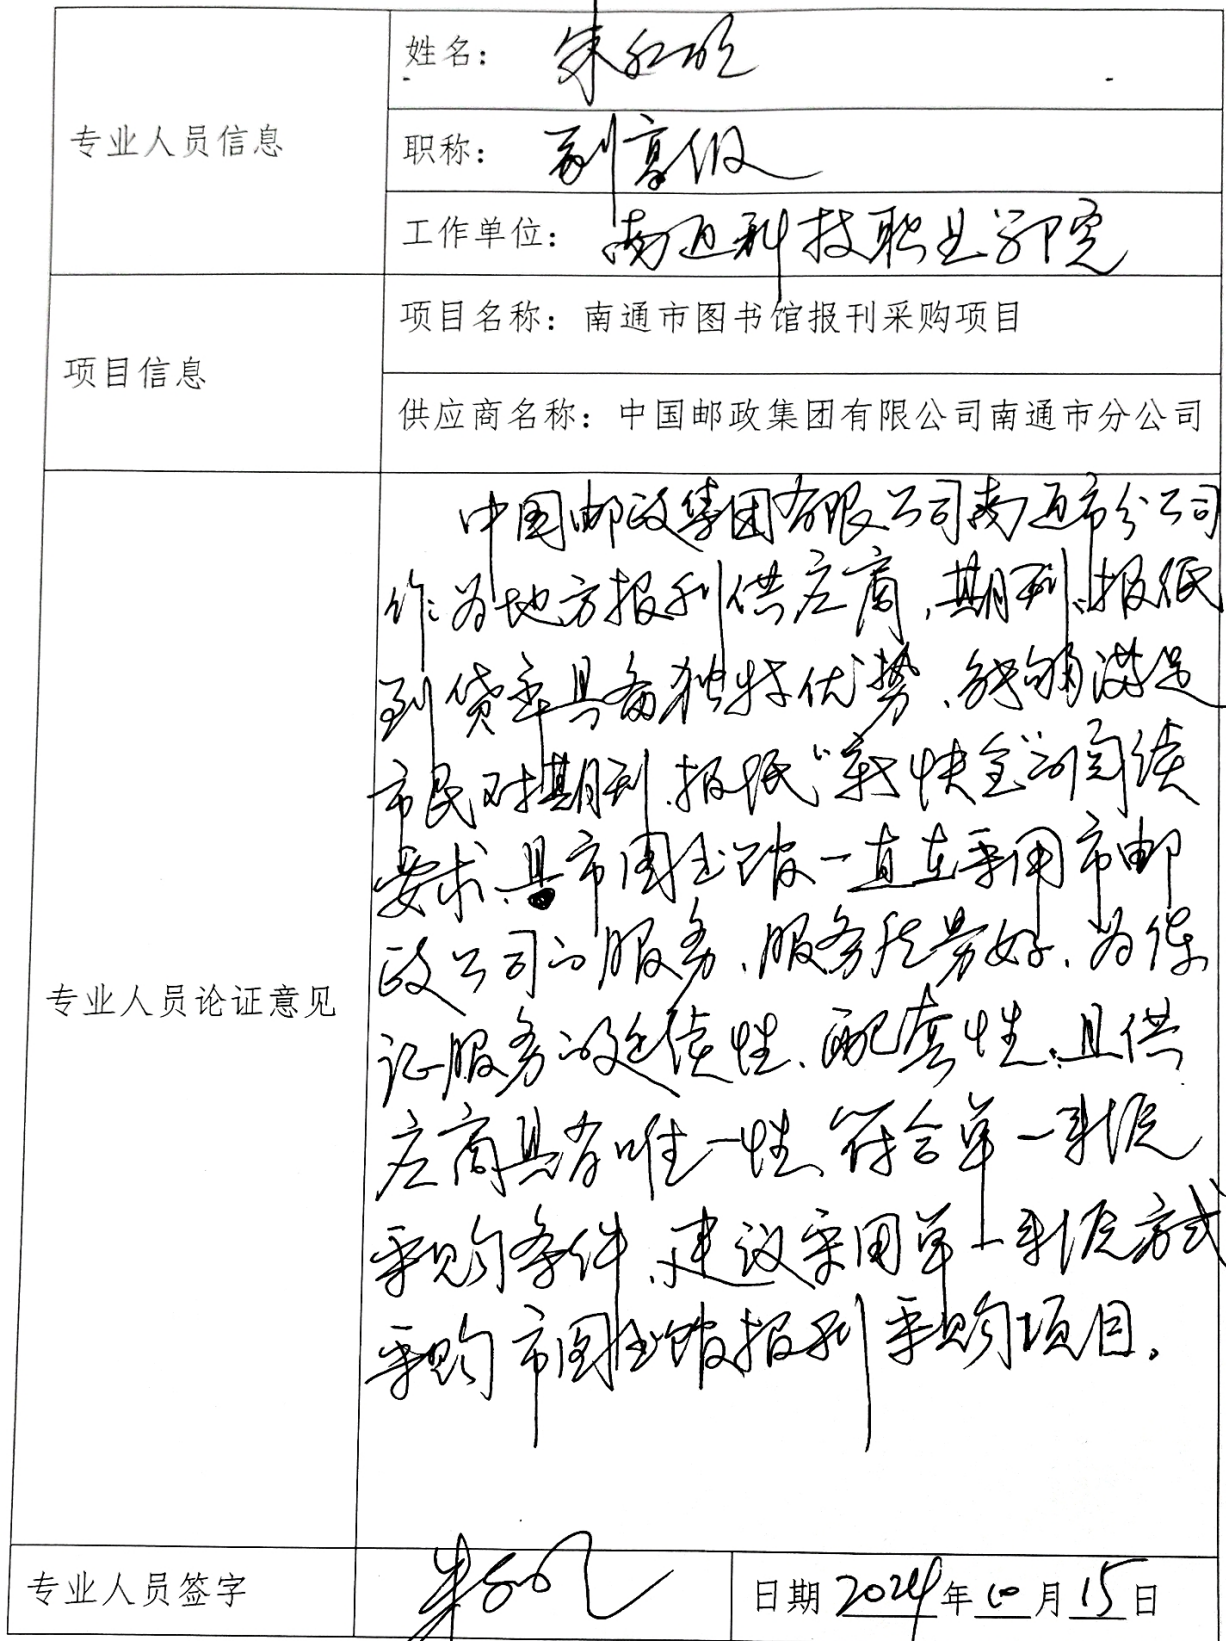 专业人员信息
姓名：朱红
职称：副高级
工作单位：南通科技职业学院
项目信息
项目名称：南通市图书馆报刊采购项目
供应商名称：中国邮政集团有限公司南通市分公司
专业人员论证意见
中国邮政集团有限公司南通市分公司
作为地方报刊供应商，期刊、报纸
到货率具备独特优势，能够满足
市民对期刊、报纸“新快全”的阅读
要求，且市图书馆一直在采用市邮
政公司的服务，服务优势好，为保
证服务的延续性、配套性，且供
应商具有唯一性，符合单一来源
采购条件，建议采用单一来源方式
采购市图书馆报刊采购项目。
专业人员签字
日期 2024年10月15日